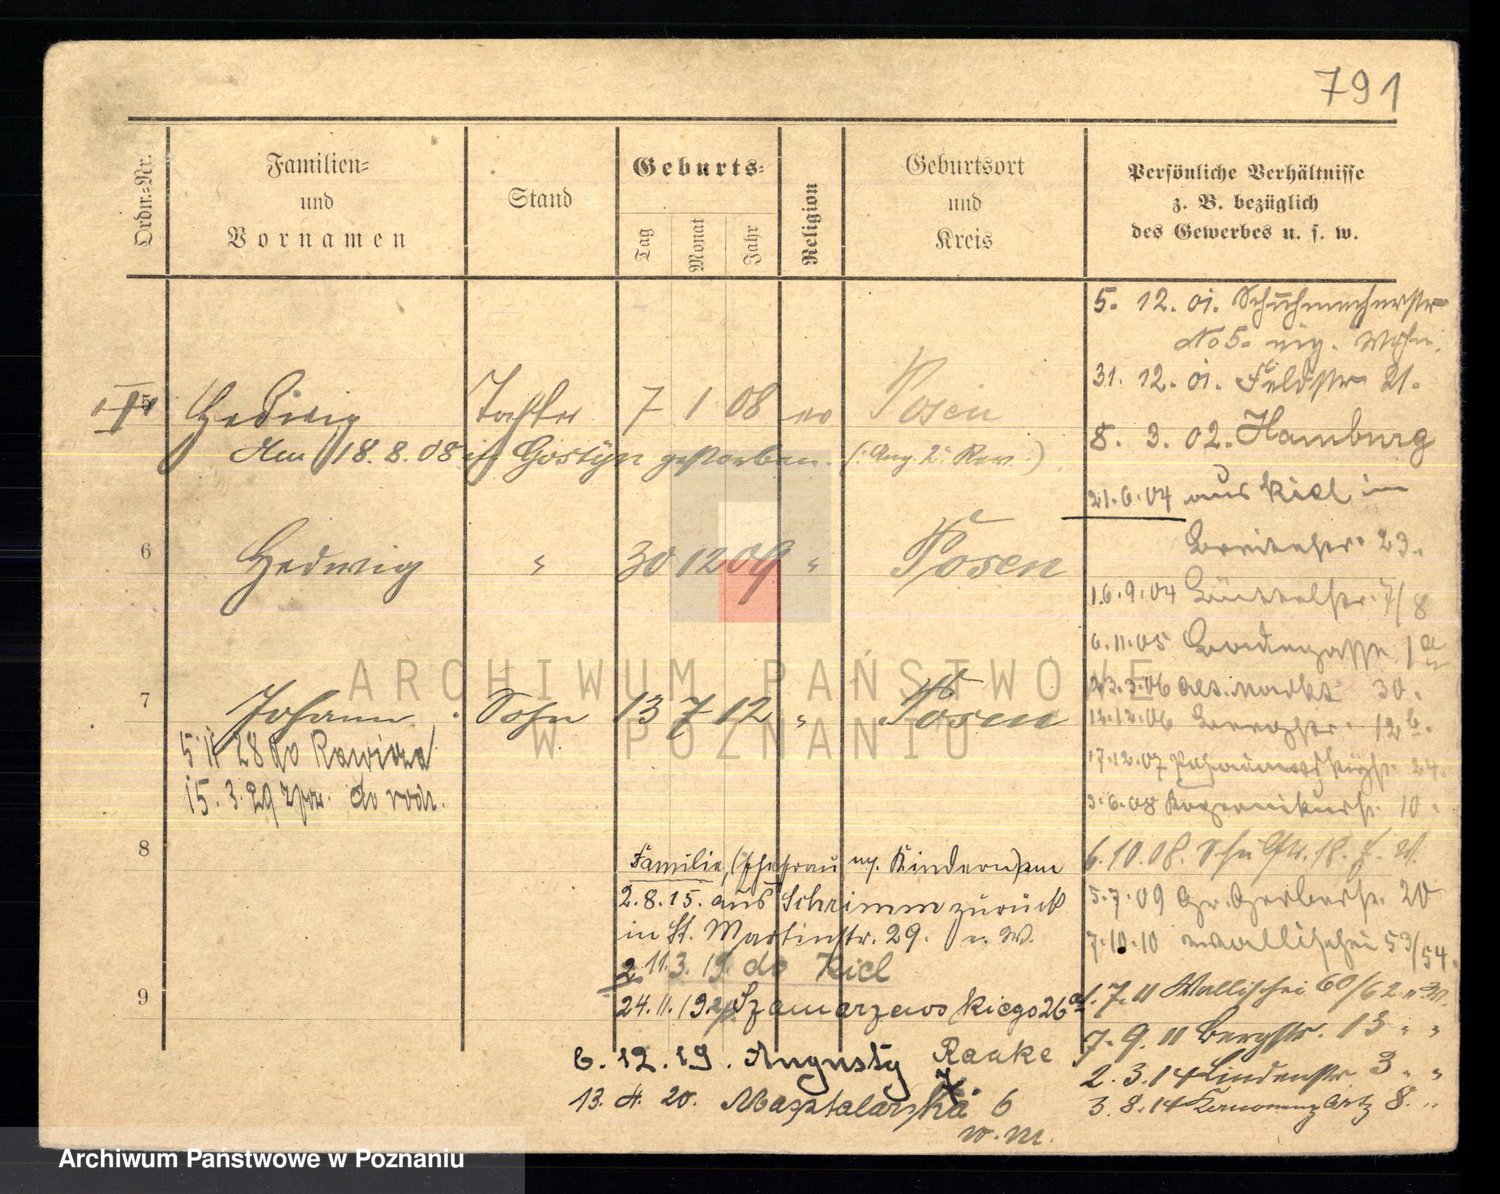 791
Ordn.-Nr.
Familien-
und
Vornamen
Stand
Geburts-
Tag
Monat
Jahr
Religion
Geburtsort
und
Kreis
Persönliche Verhältnisse
z. B. bezüglich
des Gewerbes u. s. w.
5
Hedwig Tochter 7 1 08 Posen
Am 18.8.08 in Gostyn gestorben.
6
Hedwig " 30 12 09 " Posen
7
Johann Sohn 13 7 12 " Posen
5 11 28 do Rawicza
15.3.29 do rodz.
8
Familie, (Ehefrau Kindern) am
2.8.15. aus Schrimm zurück
in St. Martinstr. 29.
11.3.19. do Kiel
9
24.11.19 Szamarzewskiego 26a
6.12.19. Augusty Raake 7.
13.4.20. Masztalarska 6
w.m.
5. 12. 01. Schuhmacherstr
No 5. eig. Wohn.
31. 12. 01. Feldstr 21.
8. 3. 02. Hamburg
21.6.04 aus Kiel in
Breitestr. 23.
16.9.04 Büttelstr. 7/8
6.11.05 Bodengasse 1a
23.3.06 Alt. Markt 30.
12.12.06 Bergstr. 12b.
17.12.07 24.
3.6.08 Kopernikusstr. 10.
6.10.08. 18.
5.7.09 Gr. Gerberstr. 20
7.10.10 Wallischei 53/54.
1.7.11 Wallischei 60/62 "W.
7.9.11 Bergstr. 13 " "
2.3.14 Lindenstr 3 " "
3.8.14 8. "
ARCHIWUM PAŃSTWOWE
W POZNANIU
Archiwum Państwowe w Poznaniu